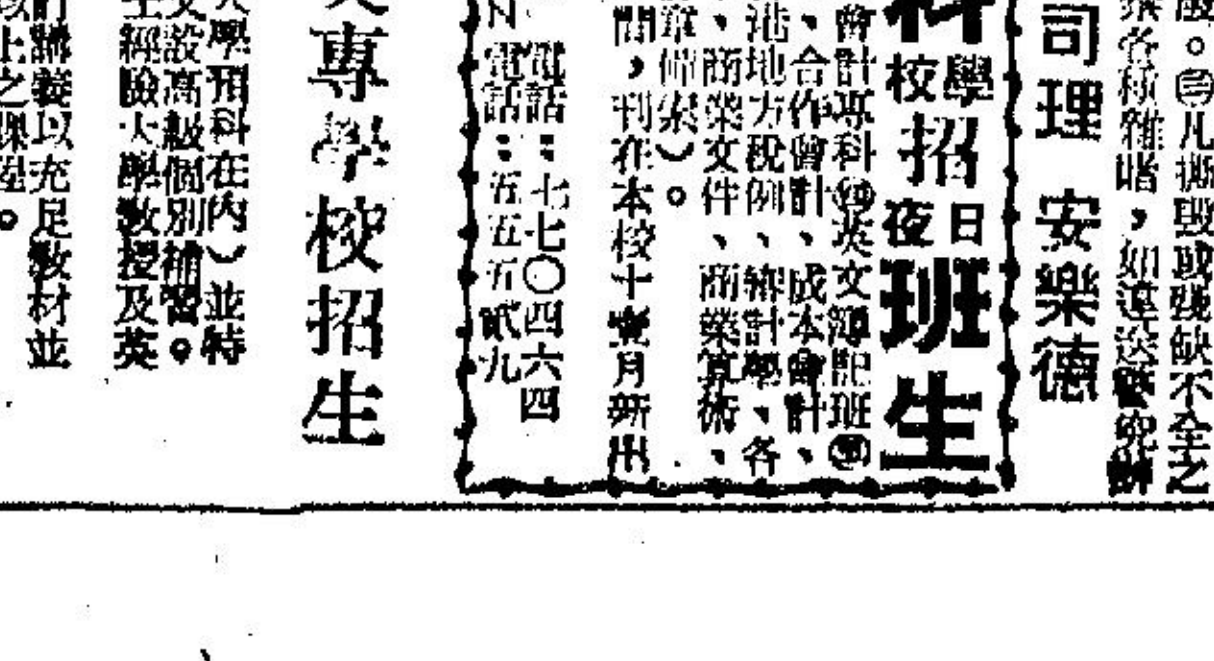 之全不缺殘或毀撕凡㊂。
各種雜唱，如違送警究辦
司理 安樂德
科
學校招
日夜
班生
會計專科 英文簿記班
、合作會計、成本會計、
港地方稅例、審計學、各
、商業文件、商業算術、
章備索）。
間，刊在本校十壹月新出
電話：七七〇四六四
N 電話：五五五貳九
專學校招生
大學預科在內）並特
設高級個別補習。
經驗大學教授及英
講義以充足教材並
以上之課程。